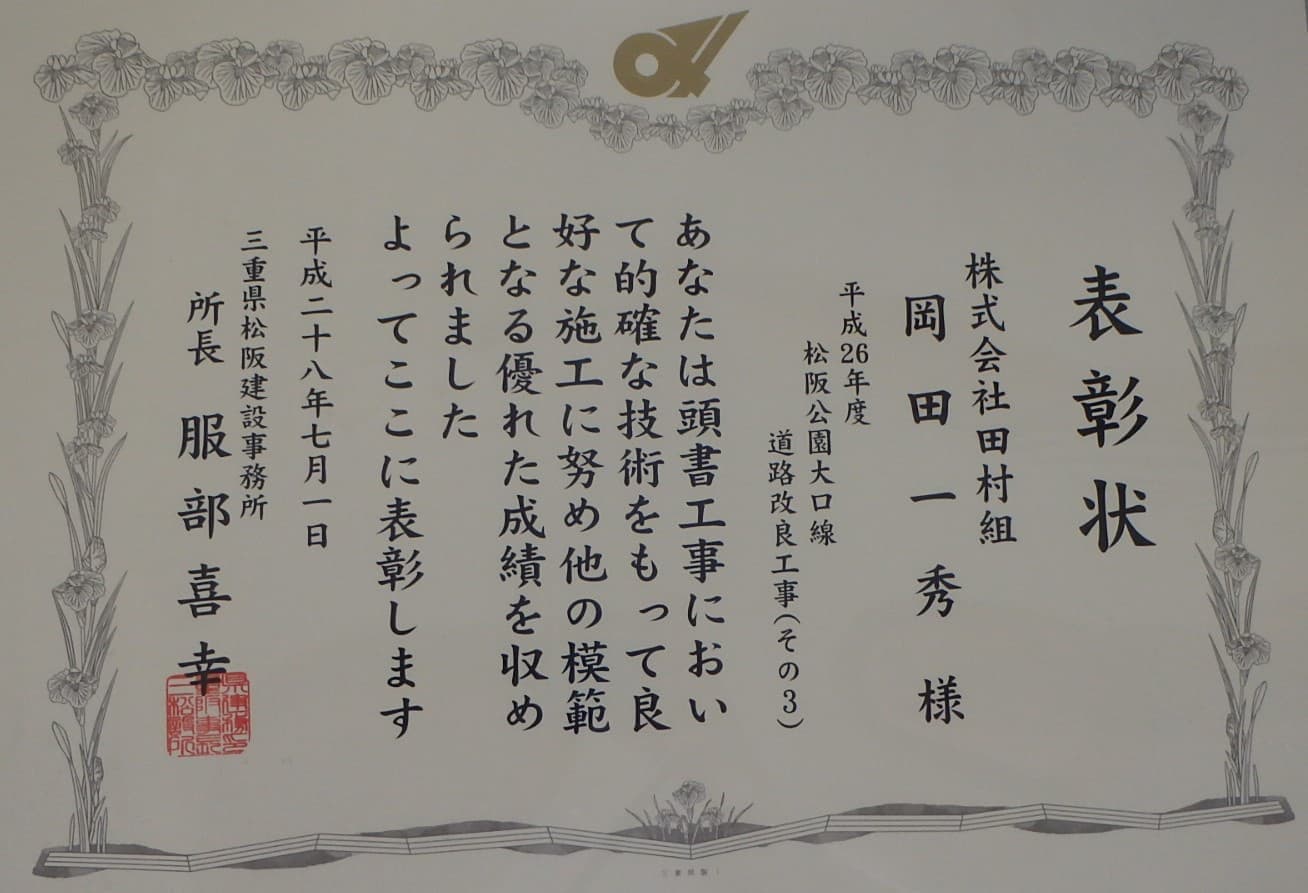 表彰状
株式会社田村組
岡田一秀様
平成26年度
松阪公園大口線
道路改良工事(その3)
あなたは頭書工事におい
て的確な技術をもって良
好な施工に努め他の模範
となる優れた成績を収め
られました
よってここに表彰します
平成二十八年七月一日
三重県松阪建設事務所
所長 服部喜幸